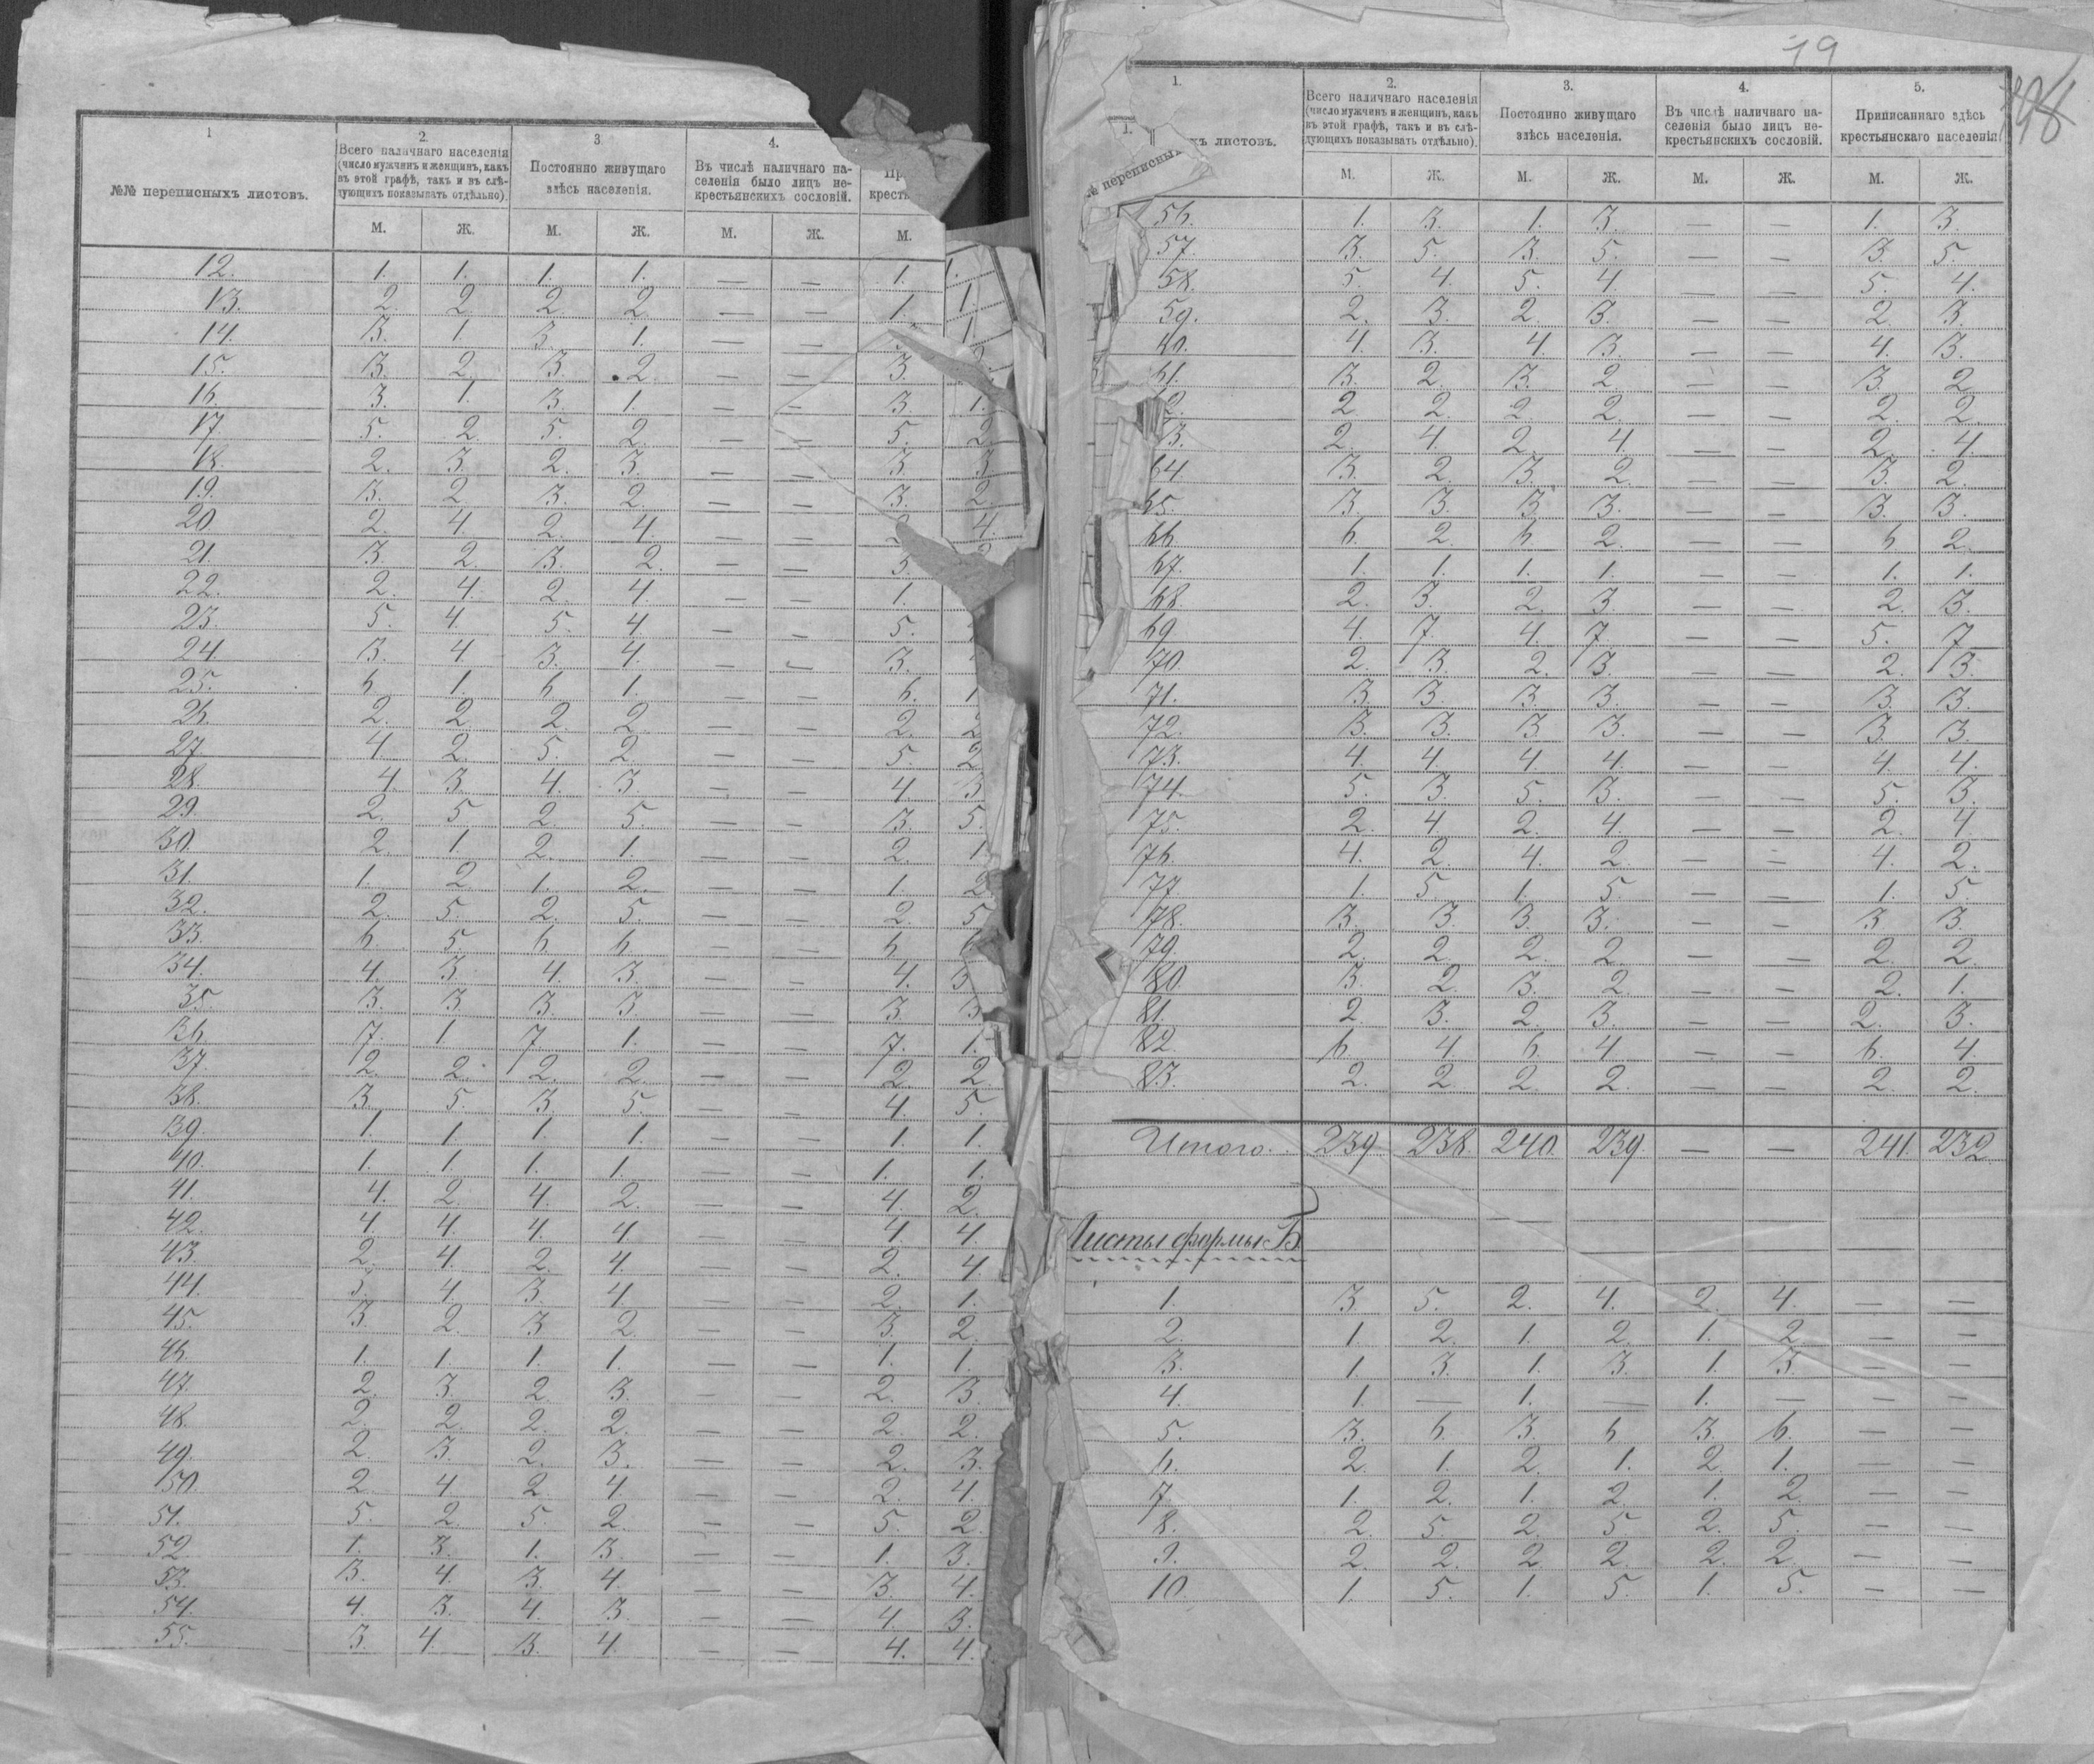 1
2.
3
4.
№№ переписныхъ листовъ.
Всего наличнаго населенія
(число мужчинъ и женщинъ, какъ
въ этой графѣ, такъ и въ слѣ-
дующихъ показывать отдѣльно).
Постоянно живущаго
здѣсь населенія.
Въ числѣ наличнаго на-
селенія было лицъ не-
крестьянскихъ сословій.
М. Ж. М. Ж. М. Ж. М.
12. 1. 1. 1. 1. — — 1. 1.
13. 2. 2 2. 2. — — 1. 1.
14. 3. 1. 3. 1. — — 1.
15. 3. 2. 3. 2. — — 3.
16. 3. 1. 3. 1. — — 3 1.
17. 5. 2. 5. 2. — — 5. 2
18. 2. 3. 2. 3. — — 3. 3
19. 3. 2. 3. 2. — — 3. 2
20 2. 4. 2. 4. — — 4.
21. 3. 2. 3. 2. — — 3.
22. 2. 4. 2. 4. — — 1.
23. 5. 4 5. 4. — — 5.
24. 3. 4 3. 4. — — 3.
25. 6. 1. 6. 1. — — 6. 1
26. 2. 2. 2. 2. — — 2. 2
27. 4 2. 5. 2. — — 5. 2
28. 4. 3. 4. 3. — — 4 3
29. 2. 5 2. 5. — — 3. 5.
30. 2. 1 2. 1. — — 2. 1.
31. 1. 2 1. 2. — — 1. 2
32. 2. 5. 2. 5. — — 2. 5
33. 6 5. 6 6. — — 6
34. 4. 3. 4. 3. — — 4. 3
35. 3. 3. 3. 3. — — 3. 3
36. 7. 1 7 1. — — 7. 1.
37. 2. 2. 2. 2. — — 2. 2.
38. 3. 5. 3. 5. — — 4. 5.
39. 1. 1 1. 1. — — 1. 1.
40. 1. 1. 1. 1. — — 1. 1.
41. 4. 2. 4. 2. — — 4. 2.
42. 4. 4. 4. 4 — — 4. 4.
43. 2. 4. 2. 4. — — 2. 4.
44. 3. 4. 3. 4. — — 2. 1.
45. 3. 2. 3 2. — — 3. 2.
46. 1. 1. 1. 1. — — 1. 1.
47. 2. 3. 2. 3. — — 2. 3
48. 2. 2. 2. 2. — — 2. 2.
49. 2. 3. 2. 3. — — 2. 3.
50. 2. 4 2. 4. — — 2. 4.
51. 5. 2. 5. 2. — — 5. 2.
52. 1. 3. 1. 3. — — 1. 3.
53. 3. 4. 3. 4. — — 3. 4.
54. 4. 3. 4. 3. — — 4. 3.
55. 3. 4. 3. 4 — — 4. 4.
19
1.
2.
3.
4.
5.
хъ листовъ.
№ переписныхъ
Всего наличнаго населенія
(число мужчинъ и женщинъ, какъ
въ этой графѣ, такъ и въ слѣ-
дующихъ показывать отдѣльно).
Постоянно живущаго
здѣсь населенія.
Въ числѣ наличнаго на-
селенія было лицъ не-
крестьянскихъ сословій.
Приписаннаго здѣсь
крестьянскаго населенія
М. Ж. М. Ж. М. Ж. М. Ж.
56. 1. 3. 1. 3. — — 1. 3.
57. 3. 5. 3. 5. — — 3. 5.
58. 5. 4. 5. 4. — — 5. 4.
59. 2. 3. 2. 3. — — 2. 3.
60. 4. 3. 4. 3. — — 4. 3.
61. 3. 2. 3. 2. — — 3. 2
2. 2 2. 2. 2. — — 2. 2.
3. 2. 4. 2 4. — — 2. 4.
64. 3. 2. 3. 2. — — 3. 2.
65. 3. 3. 3. 3. — — 3. 3.
66. 6. 2. 6. 2. — — 6. 2.
67. 1. 1. 1. 1. — — 1. 1.
68. 2. 3. 2. 3. — — 2. 3.
69 4. 7. 4. 7. — — 5. 7
70. 2. 3. 2. 3. — — 2. 3.
71. 3. 3. 3. 3. — — 3. 3.
72. 3. 3. 3. 3. — — 3. 3.
73. 4. 4. 4. 4. — — 4. 4.
74. 5. 3. 5. 3. — — 5. 3.
75. 2. 4. 2. 4. — — 2. 4.
76. 4. 2. 4. 2. — — 4. 2.
77. 1. 5. 1. 5. — — 1. 5.
78. 3. 3. 3. 3. — — 3. 3.
79. 2. 2. 2. 2. — — 2. 2.
80. 3. 2. 3. 2. — — 2. 1.
81. 2. 3. 2. 3. — — 2. 3.
82 6. 4 6. 4. — — 6. 4.
83. 2. 2. 2. 2. — — 2. 2.
Итого. 239. 238. 240. 239. — — 241. 232.
Листы формы Б
1. 3. 5. 2. 4. 2. 4. — —
2. 1. 2. 1. 2. 1. 2. — —
3. 1. 3. 1. 3. 1. 3. — —
4. 1. — 1. — 1. — — —
5. 3. 6. 3. 6 3. 6. — —
6. 2. 1. 2. 1. 2. 1. — —
7 1. 2. 1. 2. 1. 2. — —
8. 2. 5. 2. 5. 2. 5. — —
9. 2. 2. 2. 2. 2. 2. — —
10. 1. 5. 1. 5. 1. 5. — —